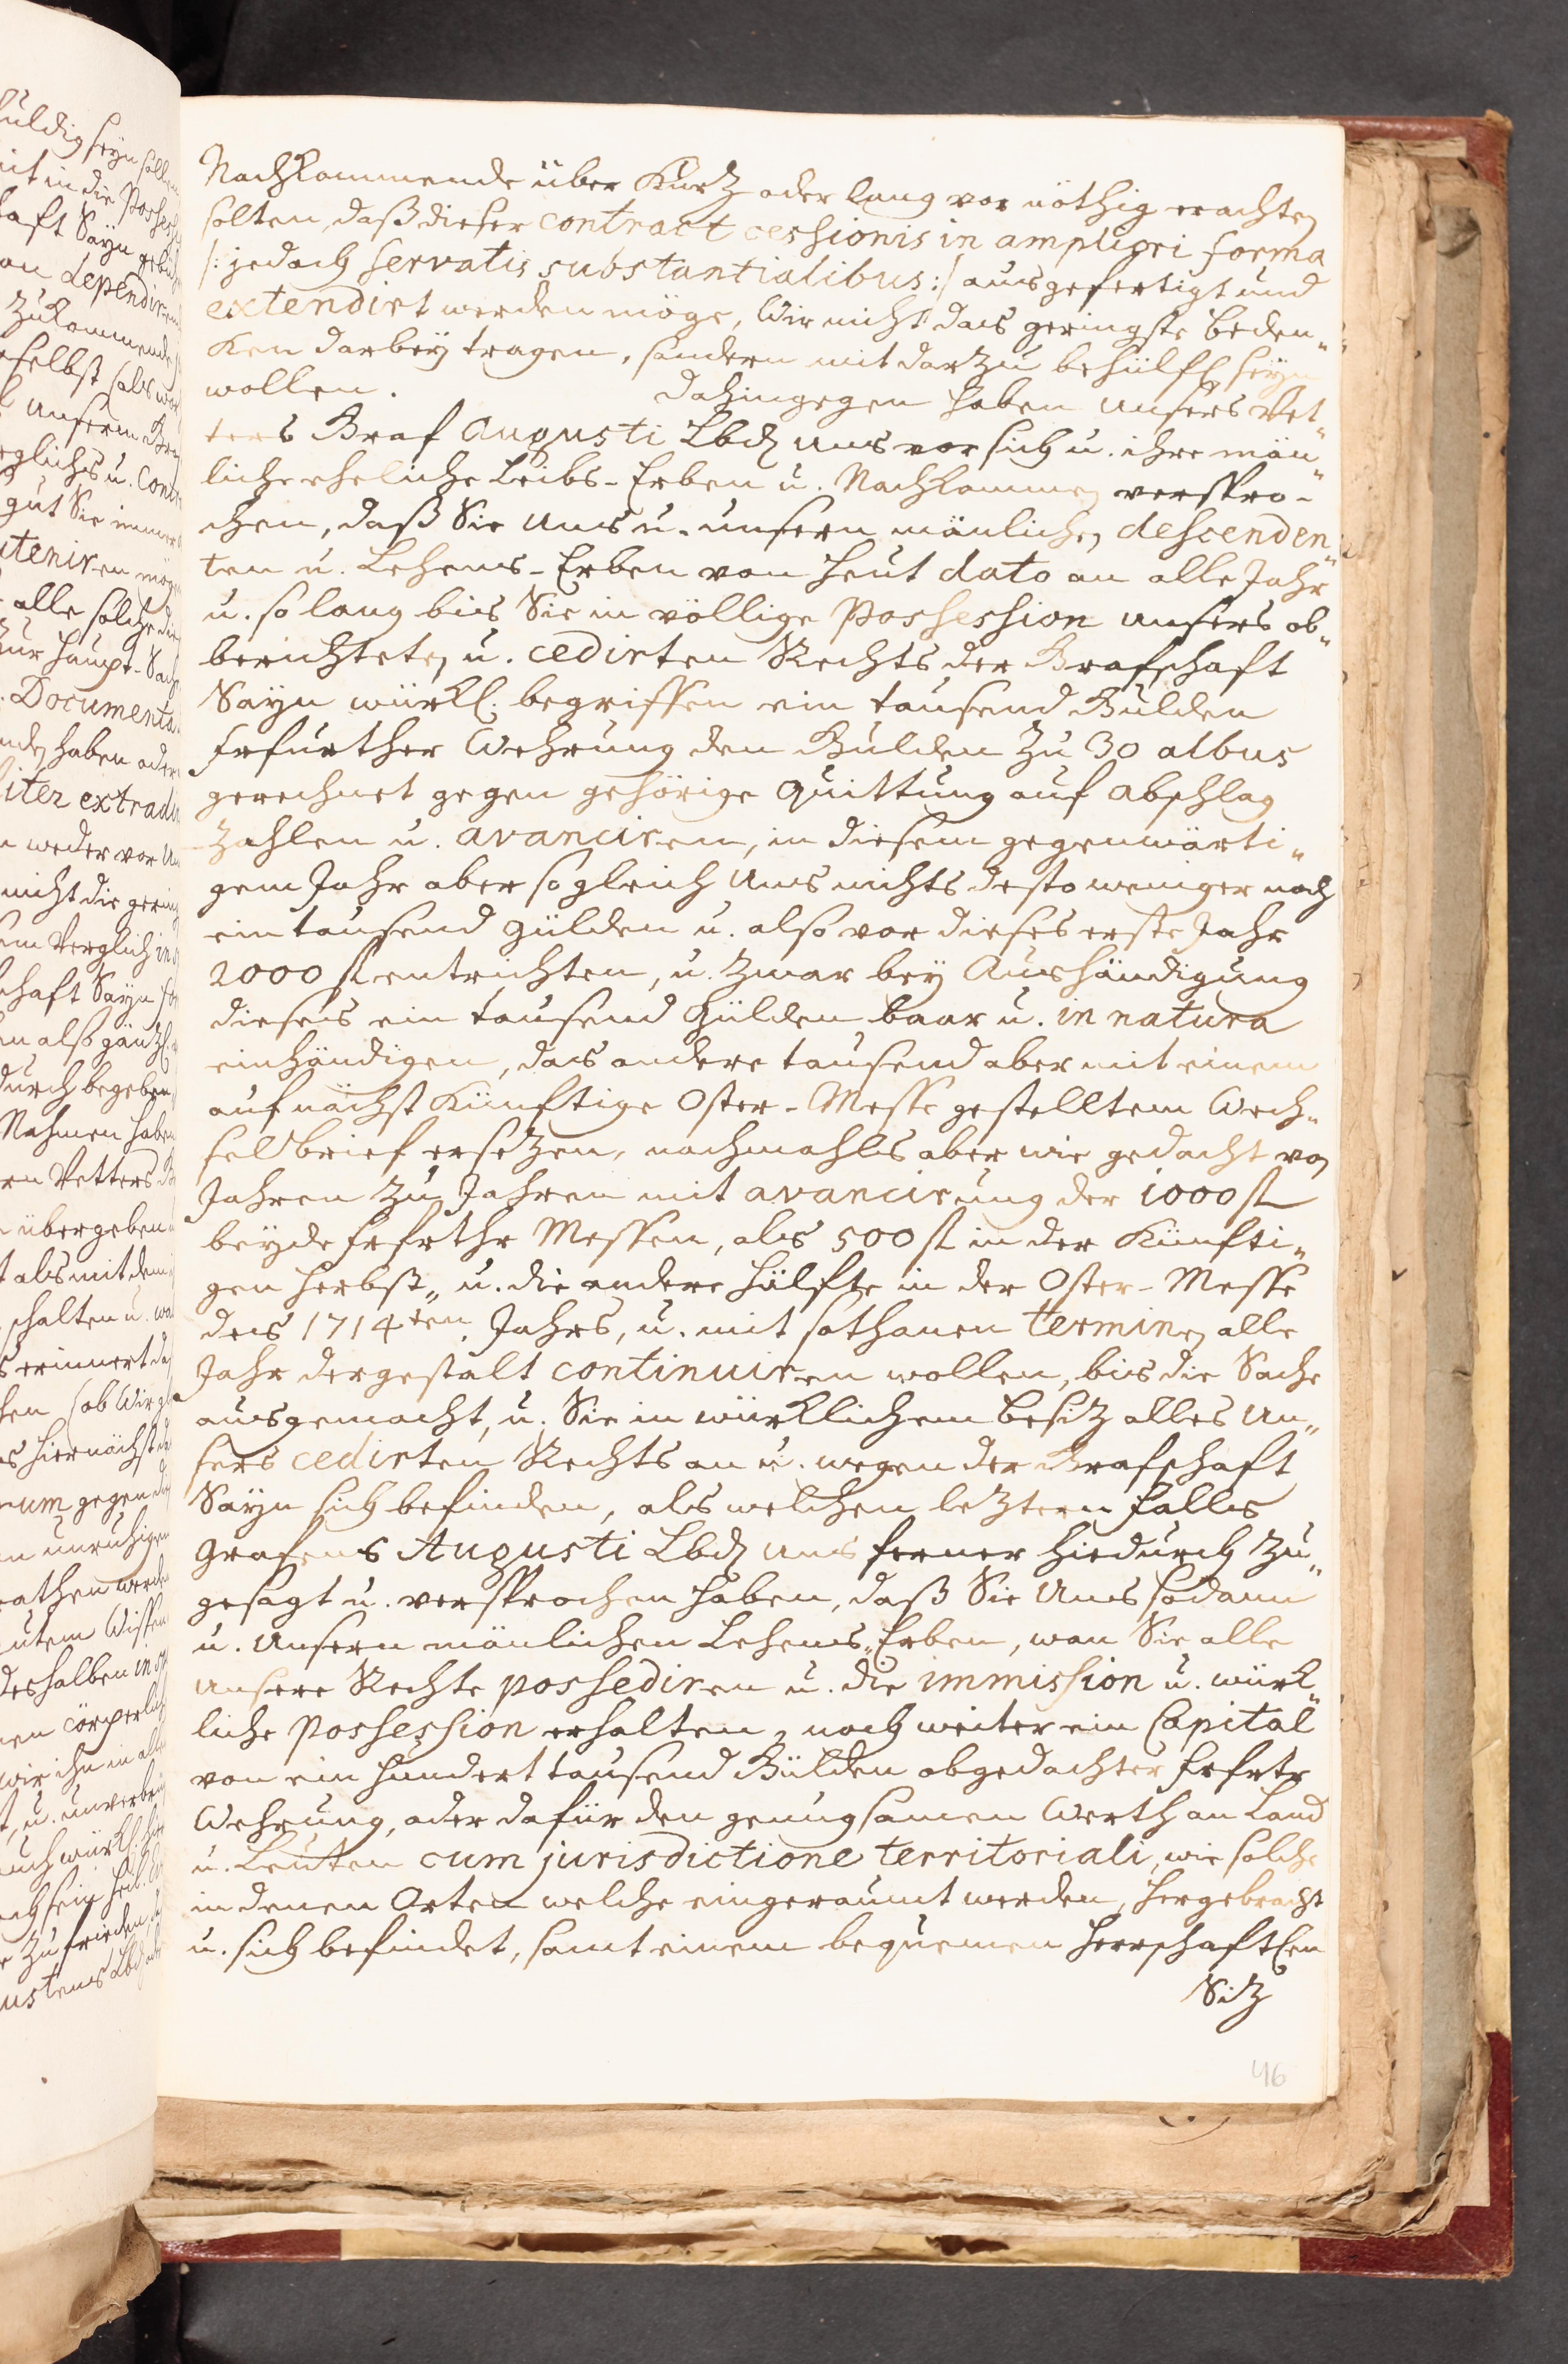 Nachkommende über kurtz oder lang vor nöthig erachten
solten, daß dieser contract cessionis in ampliori forma
/: jedoch servatis substantialibus :/ ausgefertigt und
extendirt werden möge, Wir nicht das geringste beden„
ken darbey tragen, sondern mit darzu behülfl. seyn
wollen. Dahingegen haben Unsers Vet„
ters Graf Augusti Lbd. uns vor sich u. ihre män„
liche eheliche Leibs-Erben u. Nachkommen verspro-
chen, daß Sie Uns u. unsern mänlichen descenden„
ten u. Lehens-Erben von heut dato an alle Jahr
u. so lang bis Sie in völlige Possession unsers ob„
berichteten u. cedirten Rechts der Grafschaft
Sayn würkl. begriffen ein tausend Gulden
Frfurther Wehrung den Gulden zu 30 albus
gerechnet gegen gehörige Quittung auf Abschlag
zahlen u. avanciren, in diesem gegenwärti„
gem Jahr aber sogleich Uns nichts desto weniger noch
ein tausend gülden u. also vor dieses erste Jahr
2000 fl entrichten, u. zwar bey Aushändigung
dieses ein tausend Gülden baar u. in natura
einhändigen, das andere tausend aber mit einem
auf nächst künftige Oster-Messe gestelltem Wech„
selbrief ersetzen, nachmahls aber wie gedacht von
Jahren zu Jahren mit avancirung der 1000 fl
beyde Frfrthr Messen, als 500 fl in der künfti„
gen Herbst„ u. die andere hälfte in der Oster-Messe
des 1714ten. Jahrs, u. mit sothanen terminen alle
Jahr dergestalt continuiren wollen, bis die Sache
ausgemacht, u. Sie in würklichem besitz alles Un„
sers cedirten Rechts an u. wegen der Grafschaft
Sayn sich befinden, als welchen letztern falls
Grafens Augusti Lbd. uns ferner hiedurch zu„
gesagt u. versprochen haben, daß Sie Uns sodann
u. Unsern mänlichen Lehens„Erben, wan Sie alle
unsere Rechte possediren u. die immission u. würk„
liche Possession erhalten, noch weiter ein Capital
von ein hundert tausend Gülden obgedachter Frfrtr
Wehrung, oder dafür den genugsamen Werth an Land
u. Leuten cum jurisdictione territoriali, wie solche
in denen Orten welche eingeraumt werden, hergebracht
u. sich befindet, samt einem bequemen herrschaftlen
Sitz
46